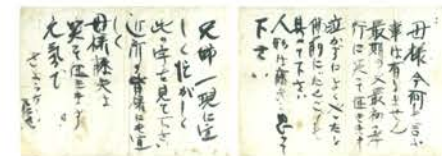 母様今何も言ふ
事は有りません
最期の又最初の孝
行に笑って征きます
泣かずによくやったと
仏前にだんご
具へて下さい
人形は藤夫と思って
下さい
兄姉一現に宜
しく忙がしく
此の字を見て下さい
近所の皆様にも宜
しく
母様藤夫は
笑って征きます
元気で
さようなら